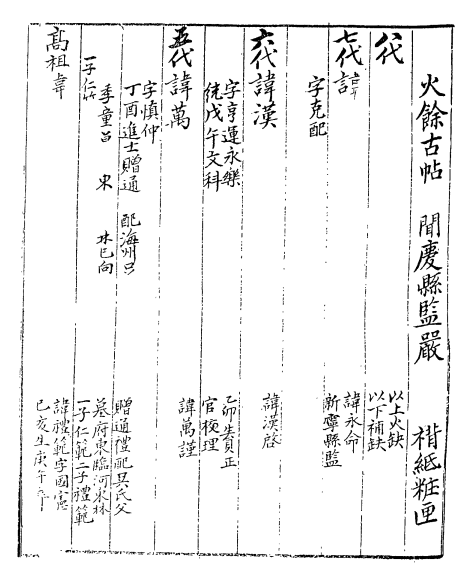 火餘古帖 聞慶縣監嚴 楷紙粧匣
八代
以上火缺
以下補缺
七代諱
諱永命
新寧縣監
字克配
六代諱漢
諱漢啓
字亨運永樂
統戊午文科
乙卯生員正
官校理
五代諱萬
諱萬謹
字慎仲
丁酉進士贈通 配海州吳
贈通禮配吳氏父
季童苗 宋 坐巳向
墓府東臨河東林
一子仁範
一子仁範二子禮範
高祖諱
諱禮範字國憲
己亥生庚午卒